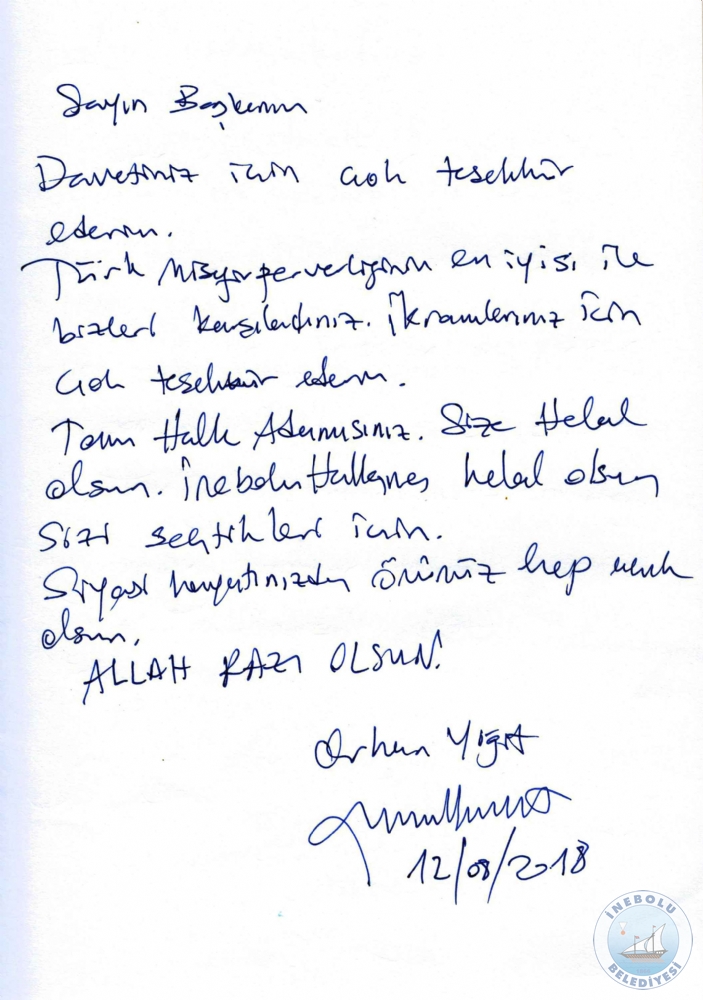 Sayın Başkanım
Davetiniz için çok teşekkür
ederim.
Türk misyirperverliğinin en iyisi ile
bizleri karşıladınız. İkramlarınız için
çok teşekkür ederim.
Tam Halk Adamısınız. Size Helal
olsun. İnebolu Halkına helal olsun
sizi seçtikleri için.
Siyasi hayatınızda önünüz hep açık
olsun.
ALLAH RAZI OLSUN!
Orhan Yiğit
12/08/2018
İNEBOLU
BELEDİYESİ